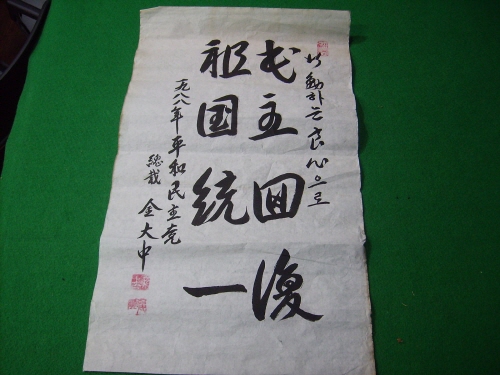 行動하는良心으로
民主回復
祖国統一
一九八八年 平和民主党
総裁 金大中